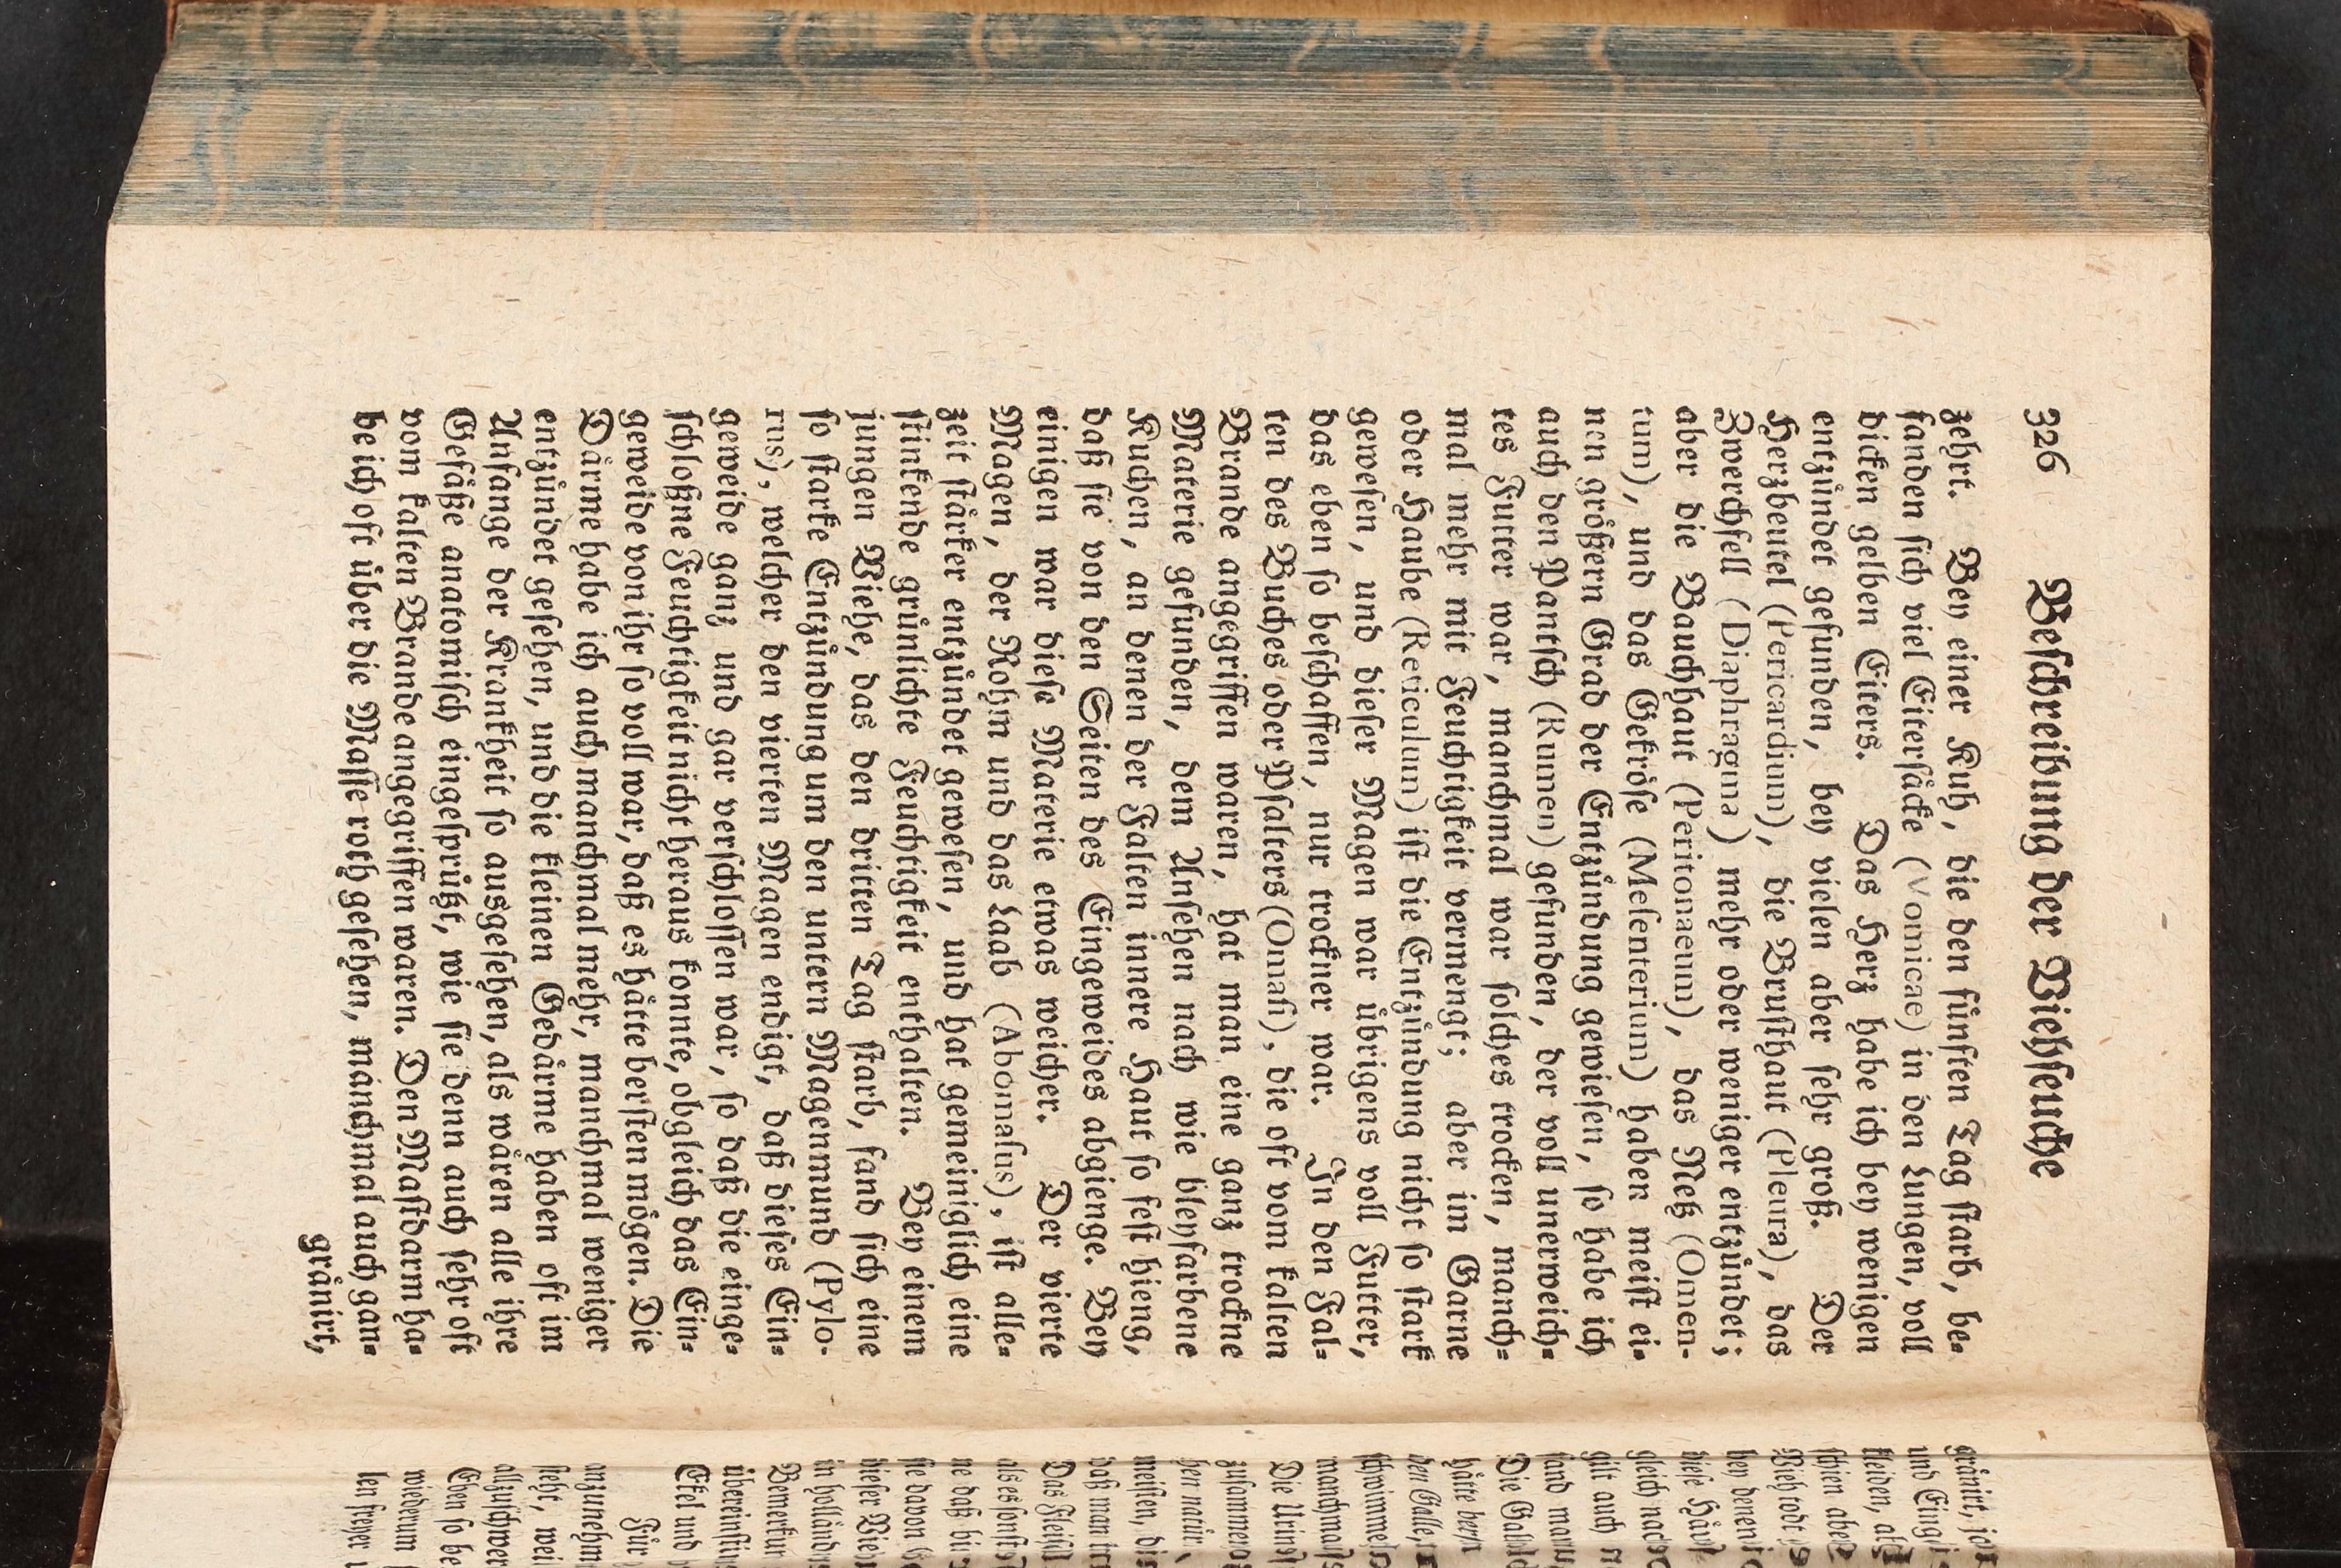 326 Beschreibung der Viehseuche
zehrt. Bey einer Kuh, die den fünften Tag starb, be-
fanden sich viel Eitersäcke (Vomicae) in den Lungen, voll
dicken gelben Eiters. Das Herz habe ich bey wenigen
entzündet gefunden, bey vielen aber sehr groß. Der
Herzbeutel (Pericardium), die Brusthaut (Pleura), das
Zwerchfell (Diaphragma) mehr oder weniger entzündet;
aber die Bauchhaut (Peritonaeum), das Netz (Omen-
tum), und das Gekröse (Mesenterium) haben meist ei-
nen größern Grad der Entzündung gewiesen, so habe ich
auch den Pantsch (Rumen) gefunden, der voll unerweich-
tes Futter war, manchmal war solches trocken, manch-
mal mehr mit Feuchtigkeit vermengt; aber im Garne
oder Haube (Reticulum) ist die Entzündung nicht so stark
gewesen, und dieser Magen war übrigens voll Futter,
das eben so beschaffen, nur trockner war. In den Fal-
ten des Buches oder Psalters (Omasi), die oft vom kalten
Brande angegriffen waren, hat man eine ganz trockne
Materie gefunden, dem Ansehen nach wie bleyfarbene
Kuchen, an denen der Falten innere Haut so fest hieng,
daß sie von den Seiten des Eingeweides abgienge. Bey
einigen war diese Materie etwas weicher. Der vierte
Magen, der Rohm und das Laab (Abomasus), ist alle-
zeit stärker entzündet gewesen, und hat gemeiniglich eine
stinkende grünlichte Feuchtigkeit enthalten. Bey einem
jungen Viehe, das den dritten Tag starb, fand sich eine
so starke Entzündung um den untern Magenmund (Pylo-
rus), welcher den vierten Magen endigt, daß dieses Ein-
geweide ganz und gar verschlossen war, so daß die einge-
schloßne Feuchtigkeit nicht heraus konnte, obgleich das Ein-
geweide von ihr so voll war, daß es hätte bersten mögen. Die
Därme habe ich auch manchmal mehr, manchmal weniger
entzündet gesehen, und die kleinen Gedärme haben oft im
Anfange der Krankheit so ausgesehen, als wären alle ihre
Gefäße anatomisch eingesprützt, wie sie denn auch sehr oft
vom kalten Brande angegriffen waren. Den Mastdarm ha-
be ich oft über die Masse roth gesehen, manchmal auch gan-
gränirt,
gränirt,
und
kleiden,
schien aber
Vieh todt
bey denen
diese
gleich nach
gilt auch
fand
Die
hätte
den Galle,
schwimme
manchmal
Die Urin
zusammen
hen natür
meisten,
daß man
Das Fleisch
als es sonst
ne daß
sie davon
dieser Vieh
in
Bemerkun
übereinstim
Ekel und
Für
anzunehm
steht, wei
allzuschwer
Eben so be
wiederum
len